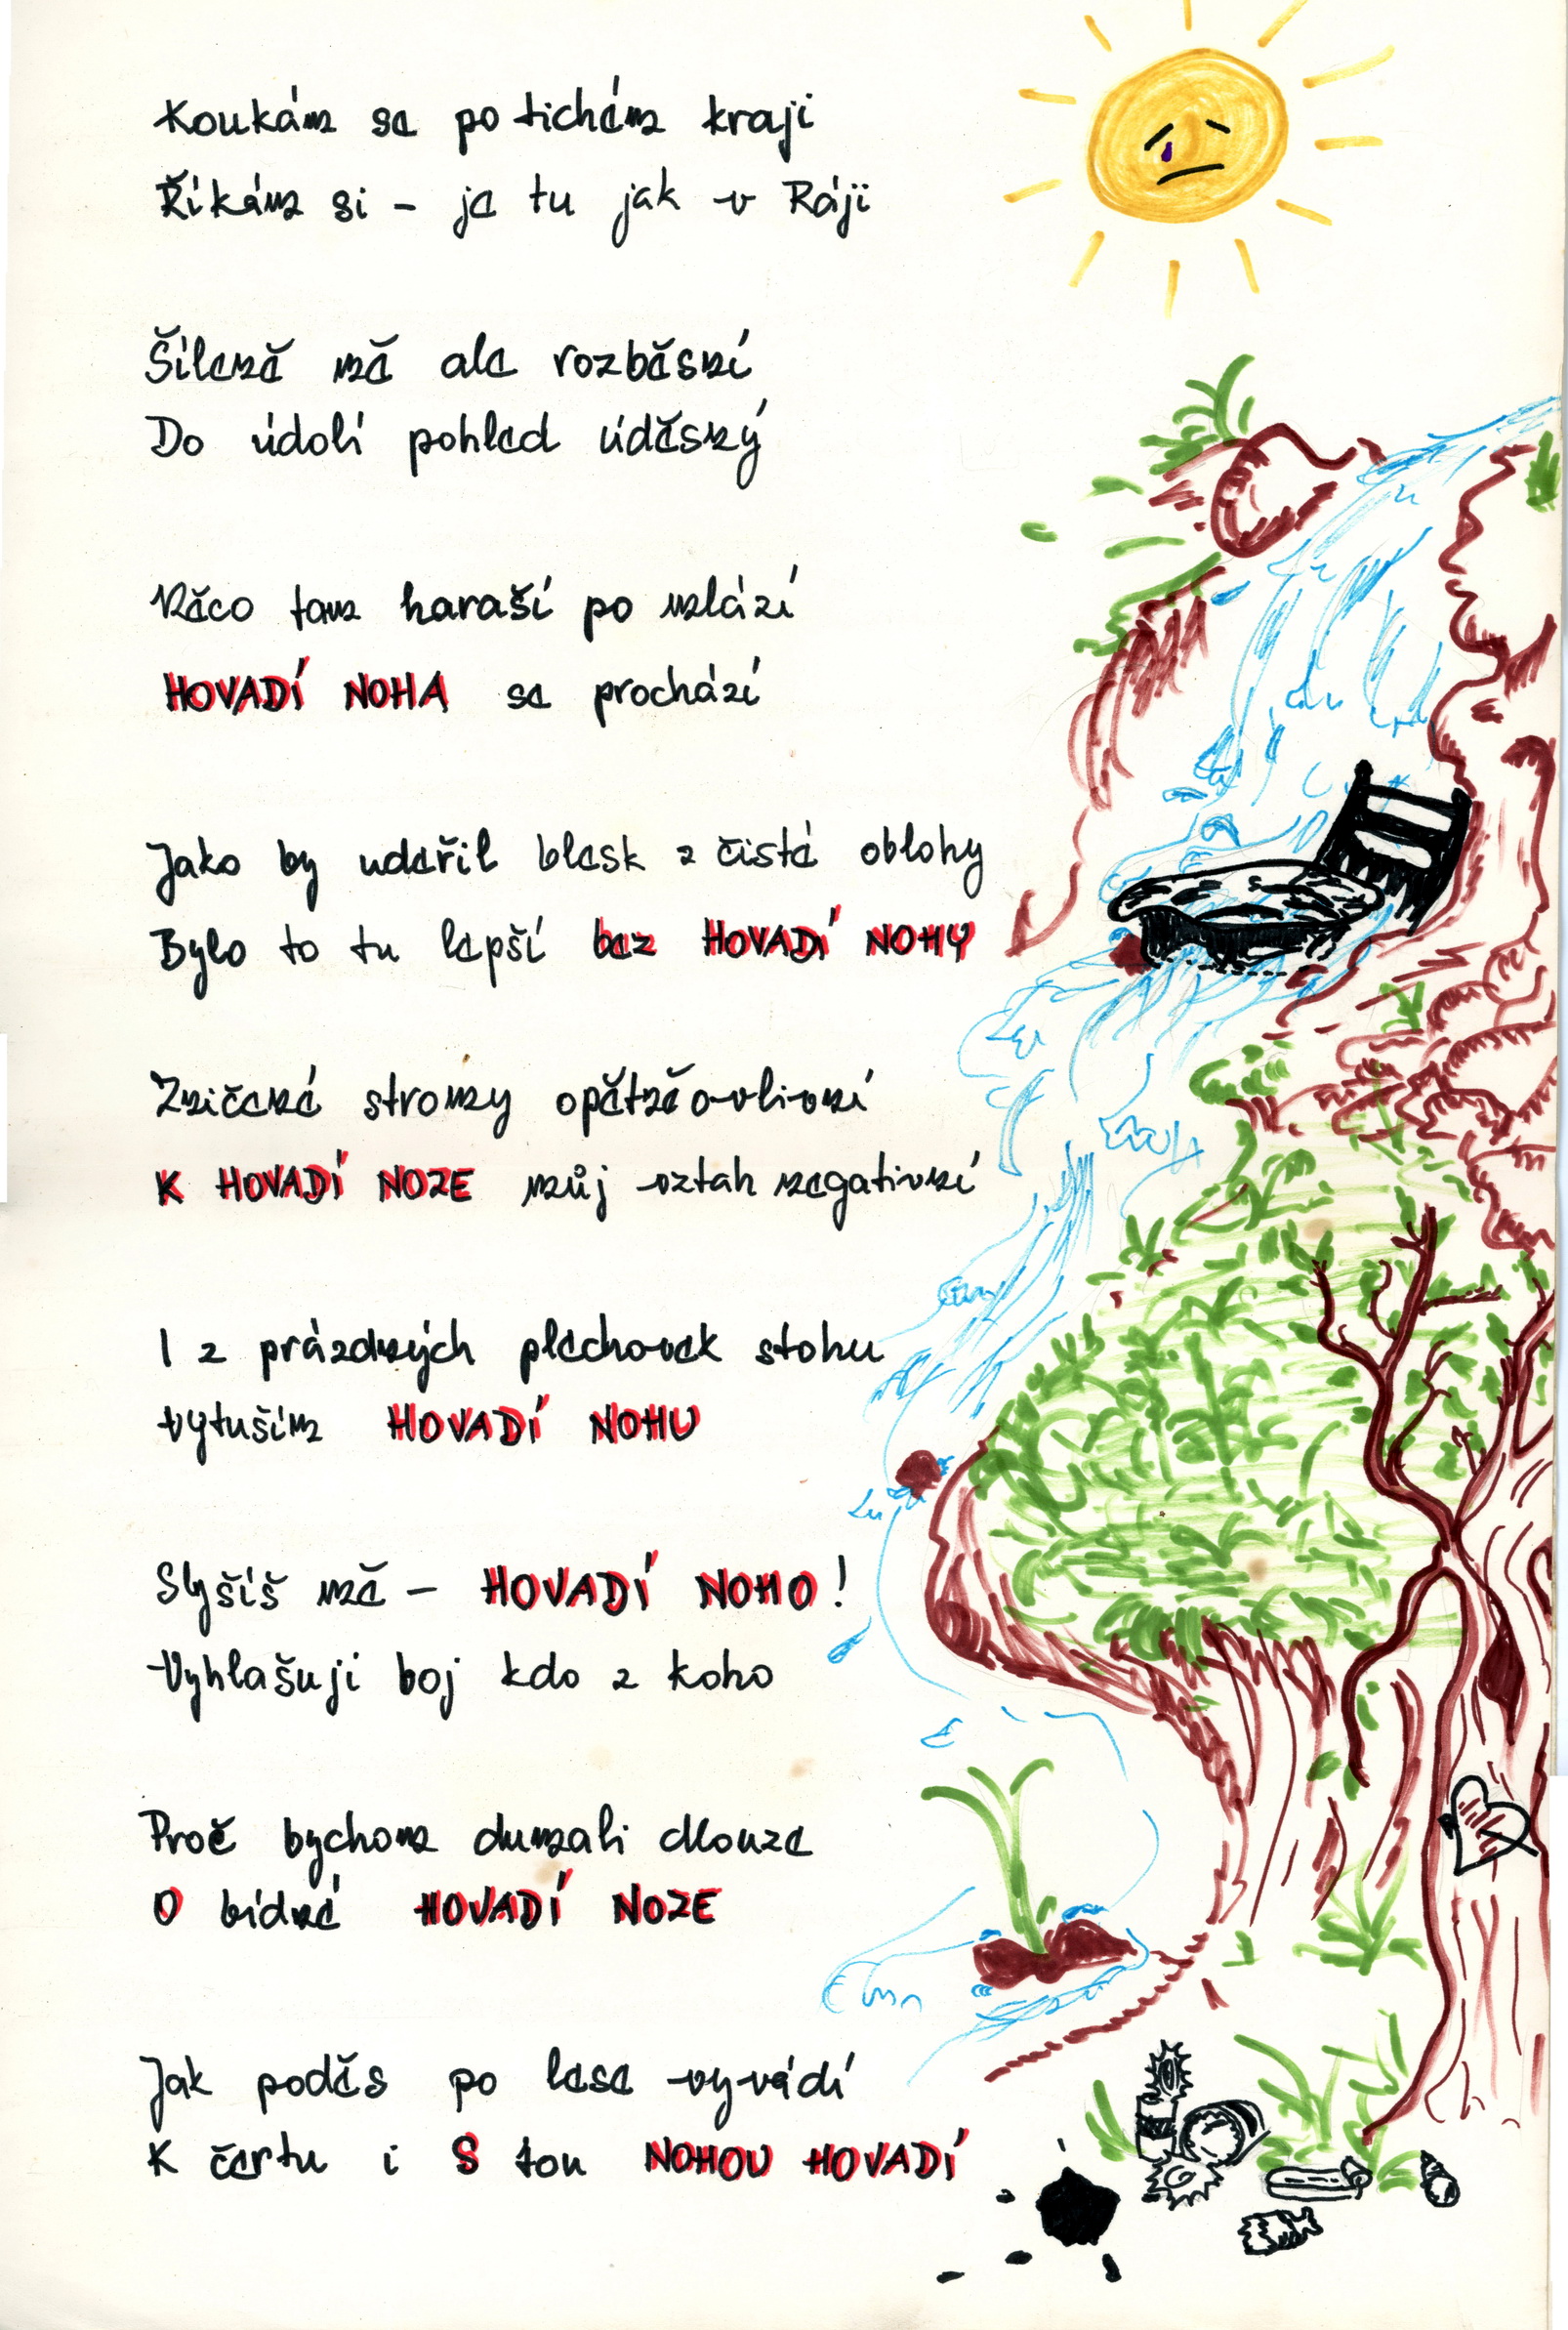 Koukám se po tichém kraji
Říkám si - je tu jak v Ráji
Šíleně mě ale rozběsní
Do údolí pohled úděsný
Něco tam haraší po mlází
HOVADÍ NOHA se prochází
Jako by udeřil blesk z čisté oblohy
Bylo to tu lepší bez HOVADÍ NOHY
Zničené stromy opětněovlivní
K HOVADÍ NOZE můj vztah negativní
I z prázdných plechovek stohu
vytuším HOVADÍ NOHU
Slyšíš mě - HOVADÍ NOHO!
Vyhlašuji boj kdo z koho
Proč bychom dumali dlouze
O bídné HOVADÍ NOZE
Jak poděs po lese vyvádí
K čertu i S tou NOHOU HOVADÍ